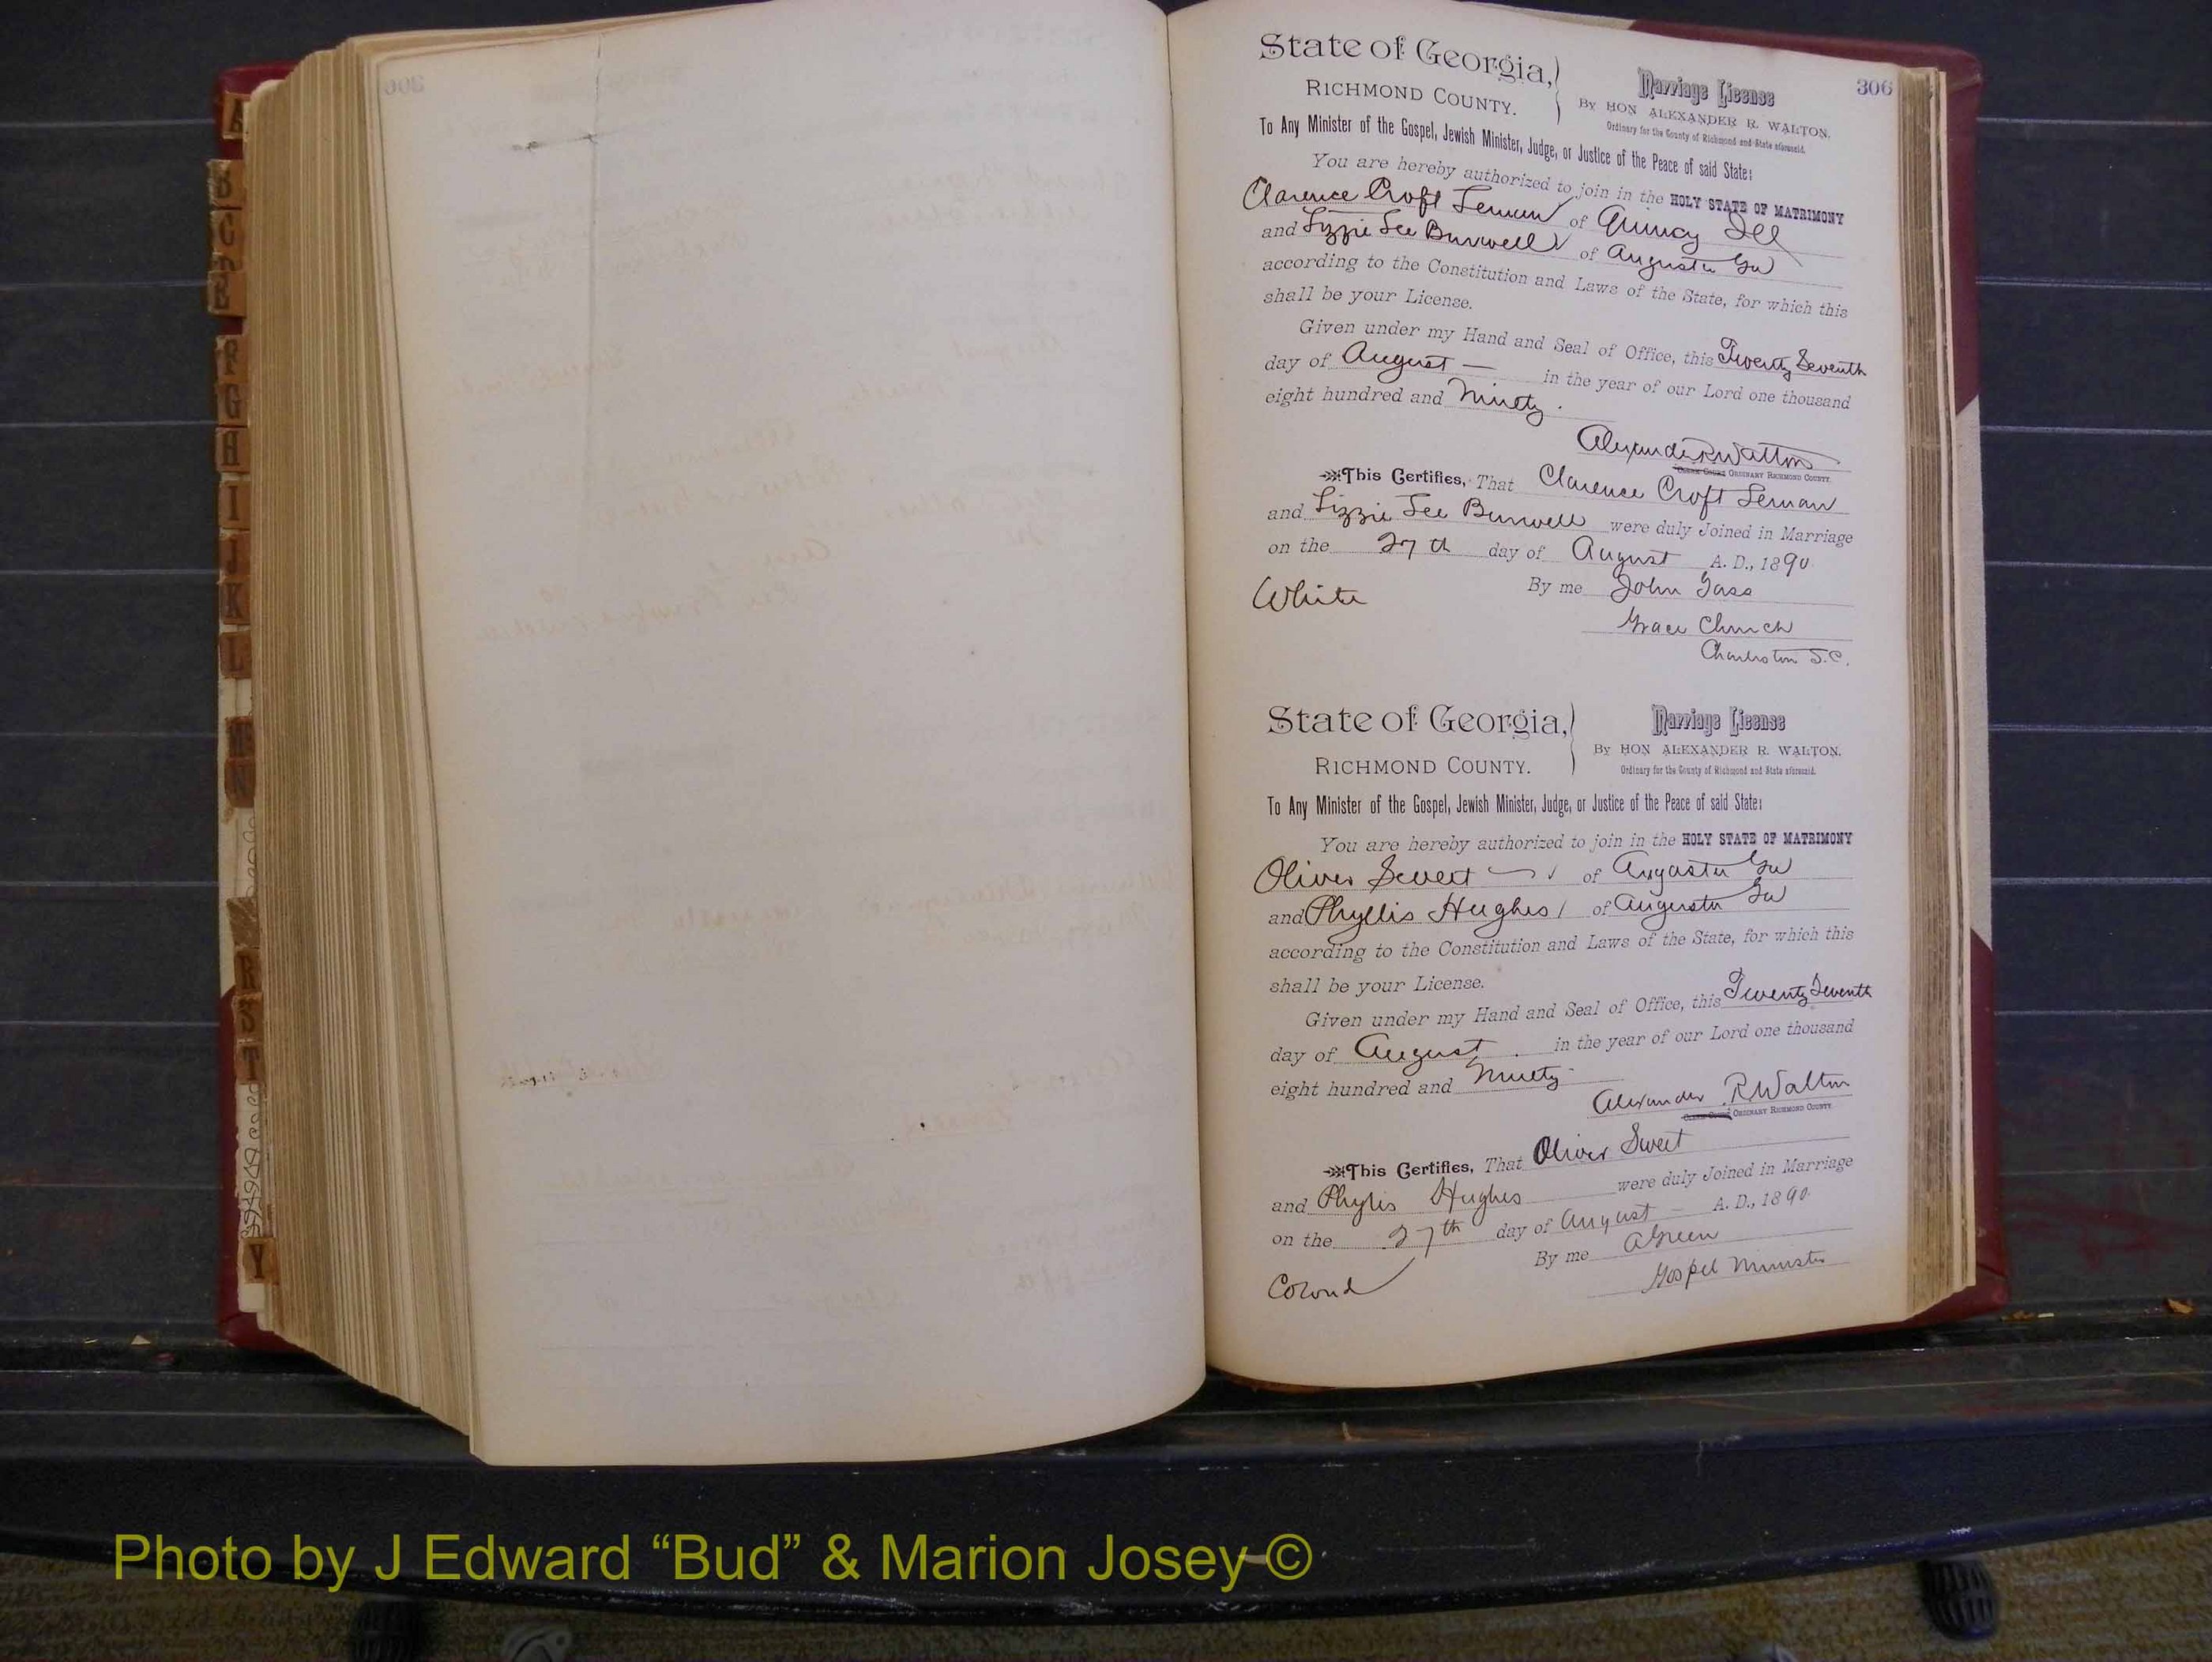 306
State of Georgia,
RICHMOND COUNTY.
Marriage License
By HON ALEXANDER R. WALTON.
Ordinary for the County of Richmond and State aforesaid.
To Any Minister of the Gospel, Jewish Minister, Judge, or Justice of the Peace of said State:
You are hereby authorized to join in the HOLY STATE OF MATRIMONY
Clarence Croft Leman of Quincy Ill
and Lizzie Lee Burwell of Augusta Ga
according to the Constitution and Laws of the State, for which this
shall be your License.
Given under my Hand and Seal of Office, this Twenty Seventh
day of August — in the year of our Lord one thousand
eight hundred and Ninety.
Alexander R Walton
CLERK COURT ORDINARY RICHMOND COUNTY.
This Certifies, That Clarence Croft Leman
and Lizzie Lee Burwell were duly Joined in Marriage
on the 27th day of August A. D., 1890
White By me John Gass
Grace Church
Charleston S.C.
State of Georgia,
RICHMOND COUNTY.
Marriage License
By HON ALEXANDER R. WALTON.
Ordinary for the County of Richmond and State aforesaid.
To Any Minister of the Gospel, Jewish Minister, Judge, or Justice of the Peace of said State:
You are hereby authorized to join in the HOLY STATE OF MATRIMONY
Oliver Sweet of Augusta Ga
and Phyllis Hughes of Augusta Ga
according to the Constitution and Laws of the State, for which this
shall be your License.
Given under my Hand and Seal of Office, this Twenty Seventh
day of August in the year of our Lord one thousand
eight hundred and Ninety
Alexander R Walton
CLERK COURT ORDINARY RICHMOND COUNTY.
This Certifies, That Oliver Sweet
and Phylis Hughes were duly Joined in Marriage
on the 27th day of August — A. D., 1890
By me A Green
Colord Gospel Minister
A
B
C
D
E
F
G
H
I
J
K
L
Mc
N
R
S
T
Y
Photo by J Edward “Bud” & Marion Josey ©